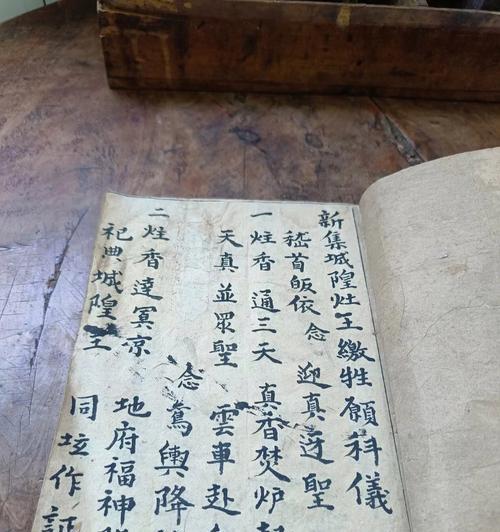 新集城隍灶王繳牲願科儀
嵇首皈依 念 迎真迓聖
一炷香 通三天 真香焚炉
天真並眾聖 雲車赴
二炷香達冥京 念 鸞輿降
祀典城隍主 地府福神
同坛作証